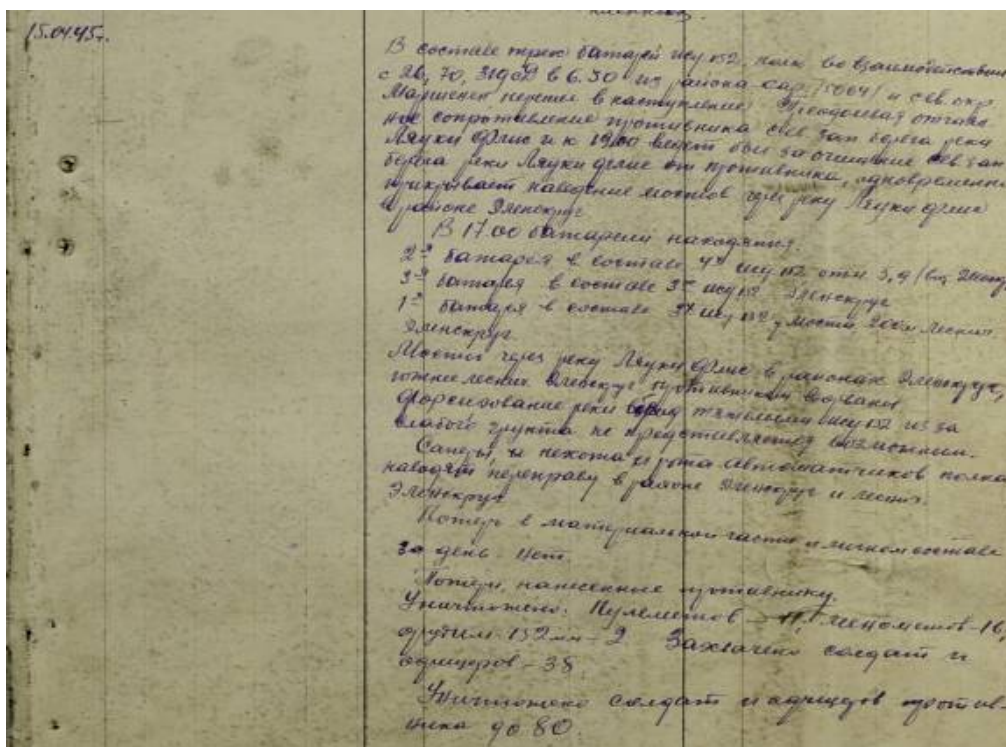 15.04.45г.
В составе трех батарей ису 152, полк во взаимодействии
с 26, 70, 319 сд в 6.30 из района сар. /5004/ и сев. окр.
перешел в наступление. Преодолевая
сопротивление противника сев зап берега реки
Ляуки флис и к 19.00 ведет бои за очищение сев зап
берега реки Ляуки флис от противника, одновременно
прикрывает наведение мостов через реку Ляуки флис
в районе Эленскруг
В 17.00 батареи находятся:
2я батарея в составе 4х ису 152 отм 5,9
3я батарея в составе 3х ису 152 Эленскруг
1я батарея в составе ису 152 у моста 200м
Эленскруг.
Мосты через реку Ляуки флис в районах Эленскруг,
южнее Эленскруг противником взорваны
форсирование реки ису 152 из за
слабого грунта не представляется возможным.
Саперы и пехота и рота автоматчиков полка
наводят переправу в районе Эленскруг и
Эленскруг
Потерь в материальной части и личном составе
за день - нет.
Потери, нанесенные противнику.
Уничтожено: Пулеметов - 11, минометов - 16,
орудий 152 мм - 2 Захвачено солдат и
офицеров - 38.
Уничтожено солдат и офицеров против-
ника до 80.